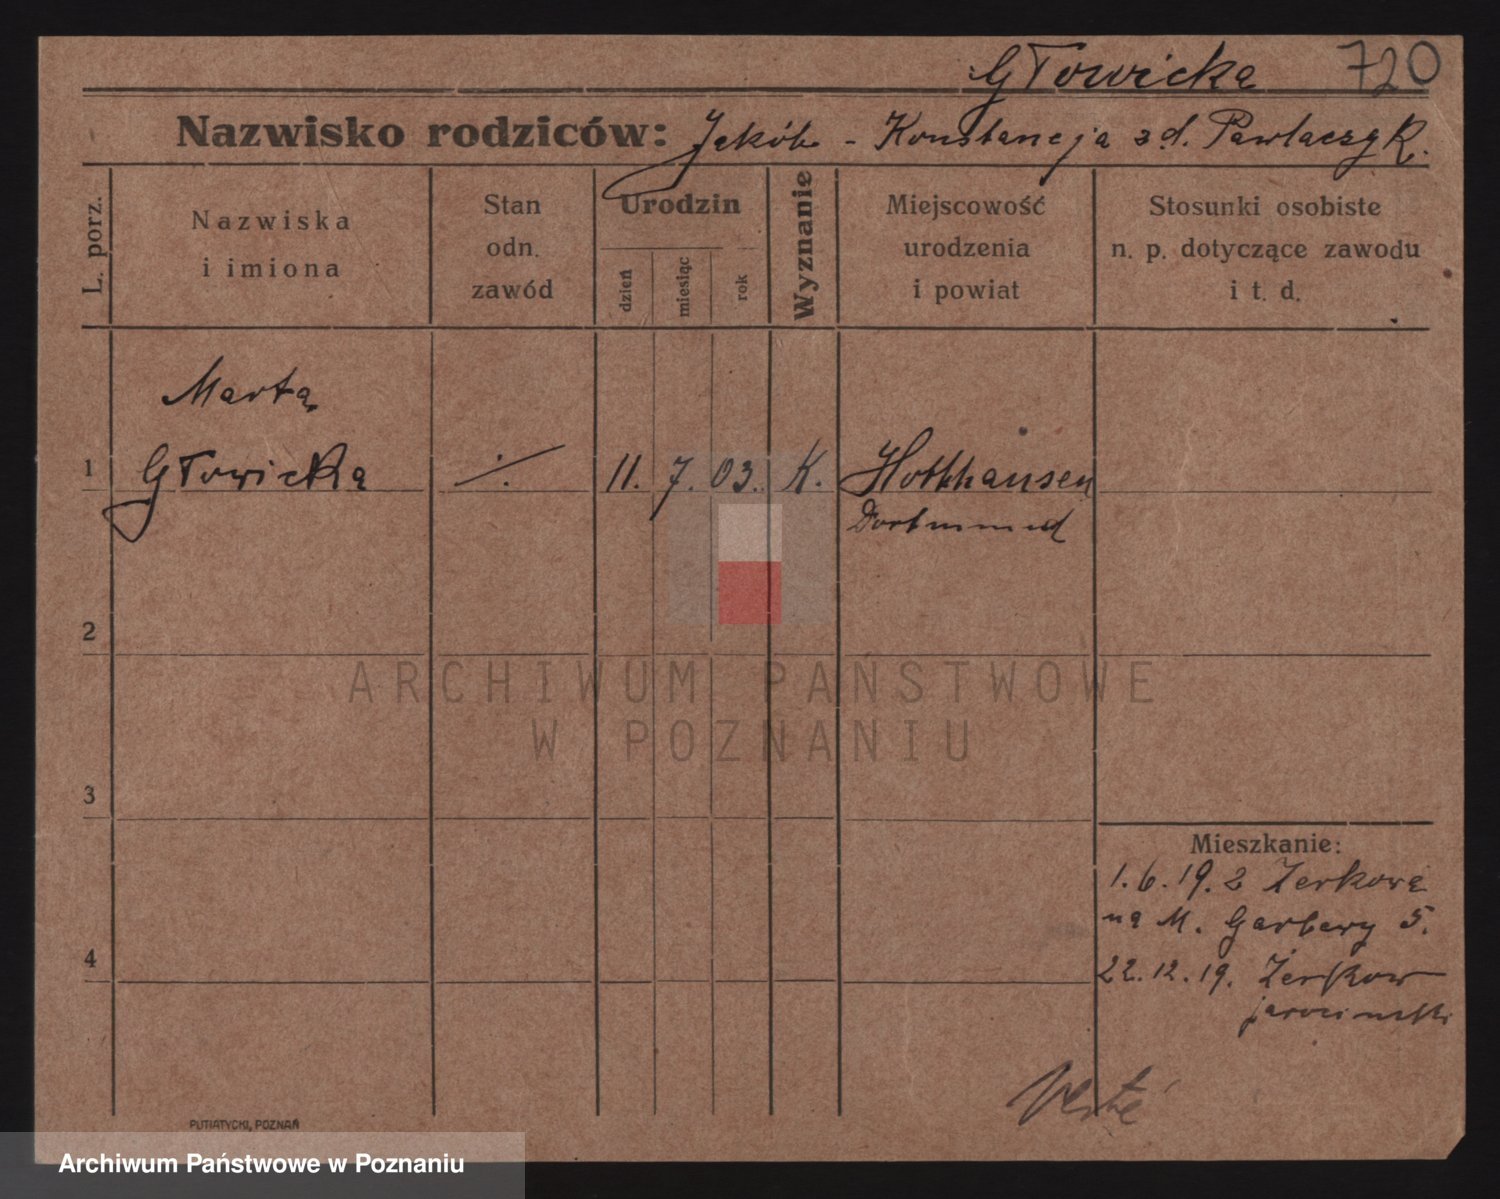 Głowicka 720
Nazwisko rodziców: Jakób - Konstancja zd. Pawlaczyk.
L. porz.
Nazwiska
i imiona
Stan
odn.
zawód
Urodzin
dzień
miesiąc
rok
Wyznanie
Miejscowość
urodzenia
i powiat
Stosunki osobiste
n. p. dotyczące zawodu
i t. d.
Marta
1 Głowicka ·/. 11. 7. 03. K. Holthausen
Dortmund
2
ARCHIWUM PAŃSTWOWE
W POZNANIU
3
Mieszkanie:
1.6.19. z Żerkowa
na M. Garbary 5.
4
22.12.19. Żerkow
jarociński
PUTIATYCKI, POZNAŃ
Archiwum Państwowe w Poznaniu